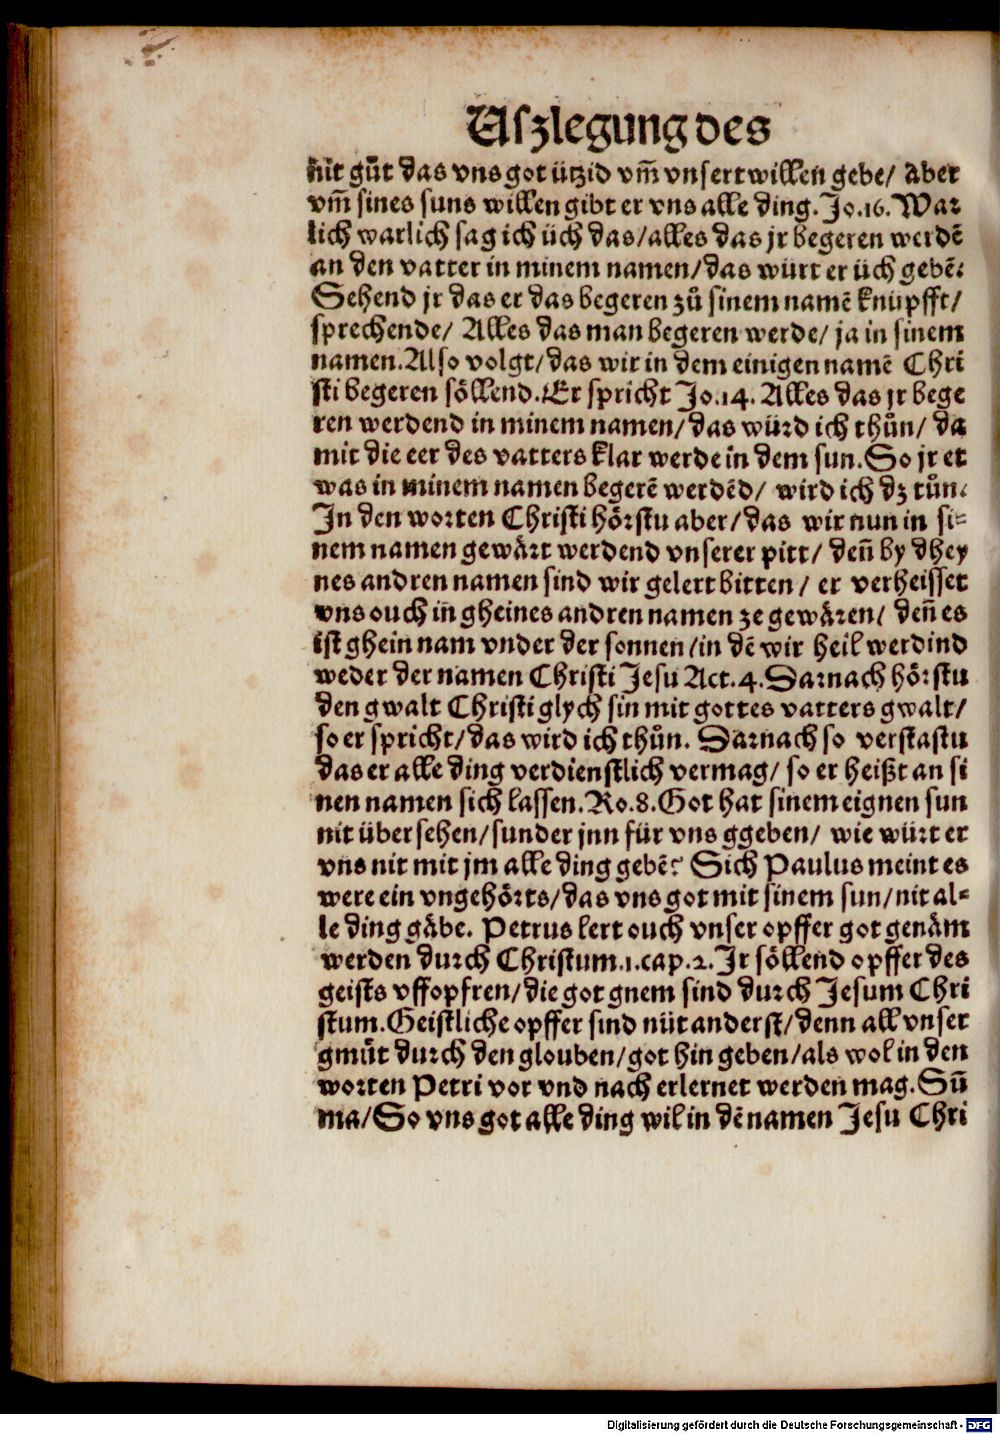 Uſzlegung des
nüt gůt das vns got ützid vm̄ vnsert willen gebe/ aber
vm̄ sines suns willen gibt er vns alle ding. Jo.16. War
lich warlich sag ich üch das/alles das jr begeren werdē
an den vatter in minem namen/das würt er üch gebē.
Sehend jr das er das begeren zů sinem namē knüpfft/
sprechende/ Alles das man begeren werde/ ja in sinem
namen. Also volgt/das wir in dem einigen namē Chri
sti begeren söllend. Er spricht Jo.14. Alles das jr bege
ren werdend in minem namen/das würd ich thůn/ da
mit die eer des vatters klar werde in dem sun. So jr et
was in minem namen begerē werdēd/ wird ich dz tůn.
In den worten Christi hörstu aber/das wir nun in si⸗
nem namen gewärt werdend vnserer pitt/ deñ by dhey
nes andren namen sind wir gelert bitten/ er verheisset
vns ouch iñ gheines andren namen ze gewären/ deñ es
ist ghein nam vnder der sonnen/in dē wir heil werdind
weder der namen Christi Jesu Act.4. Darnach hörstu
den gwalt Christi glych sin mit gottes vatters gwalt/
so er spricht/das wird ich thůn. Darnach so verstastu
das er alle ding verdienstlich vermag/ so er heißt an si
nen namen sich lassen. Ro.8. Got hat sinem eignen sun
nit übersehen/sunder jnn für vns ggeben/ wie würt er
vns nit mit jm alle ding gebē? Sich Paulus meint es
were ein vngehörts/das vns got mit sinem sun/nit al⸗
le ding gäbe. Petrus lert ouch vnser opffer got genäm
werden durch Christum.1.cap.2. Ir söllend opffer des
geists vffopfren/die got gnem sind durch Jesum Chri
stum. Geistliche opffer sind nüt anderst/denn all vnser
gmůt durch den glouben/got hin geben/als wol in den
worten Petri vor vnd nach erlernet werden mag. Sū
ma/So vns got alle ding wil in dē namen Jesu Chri
Digitalisierung gefördert durch die Deutsche Forschungsgemeinschaft - DFG